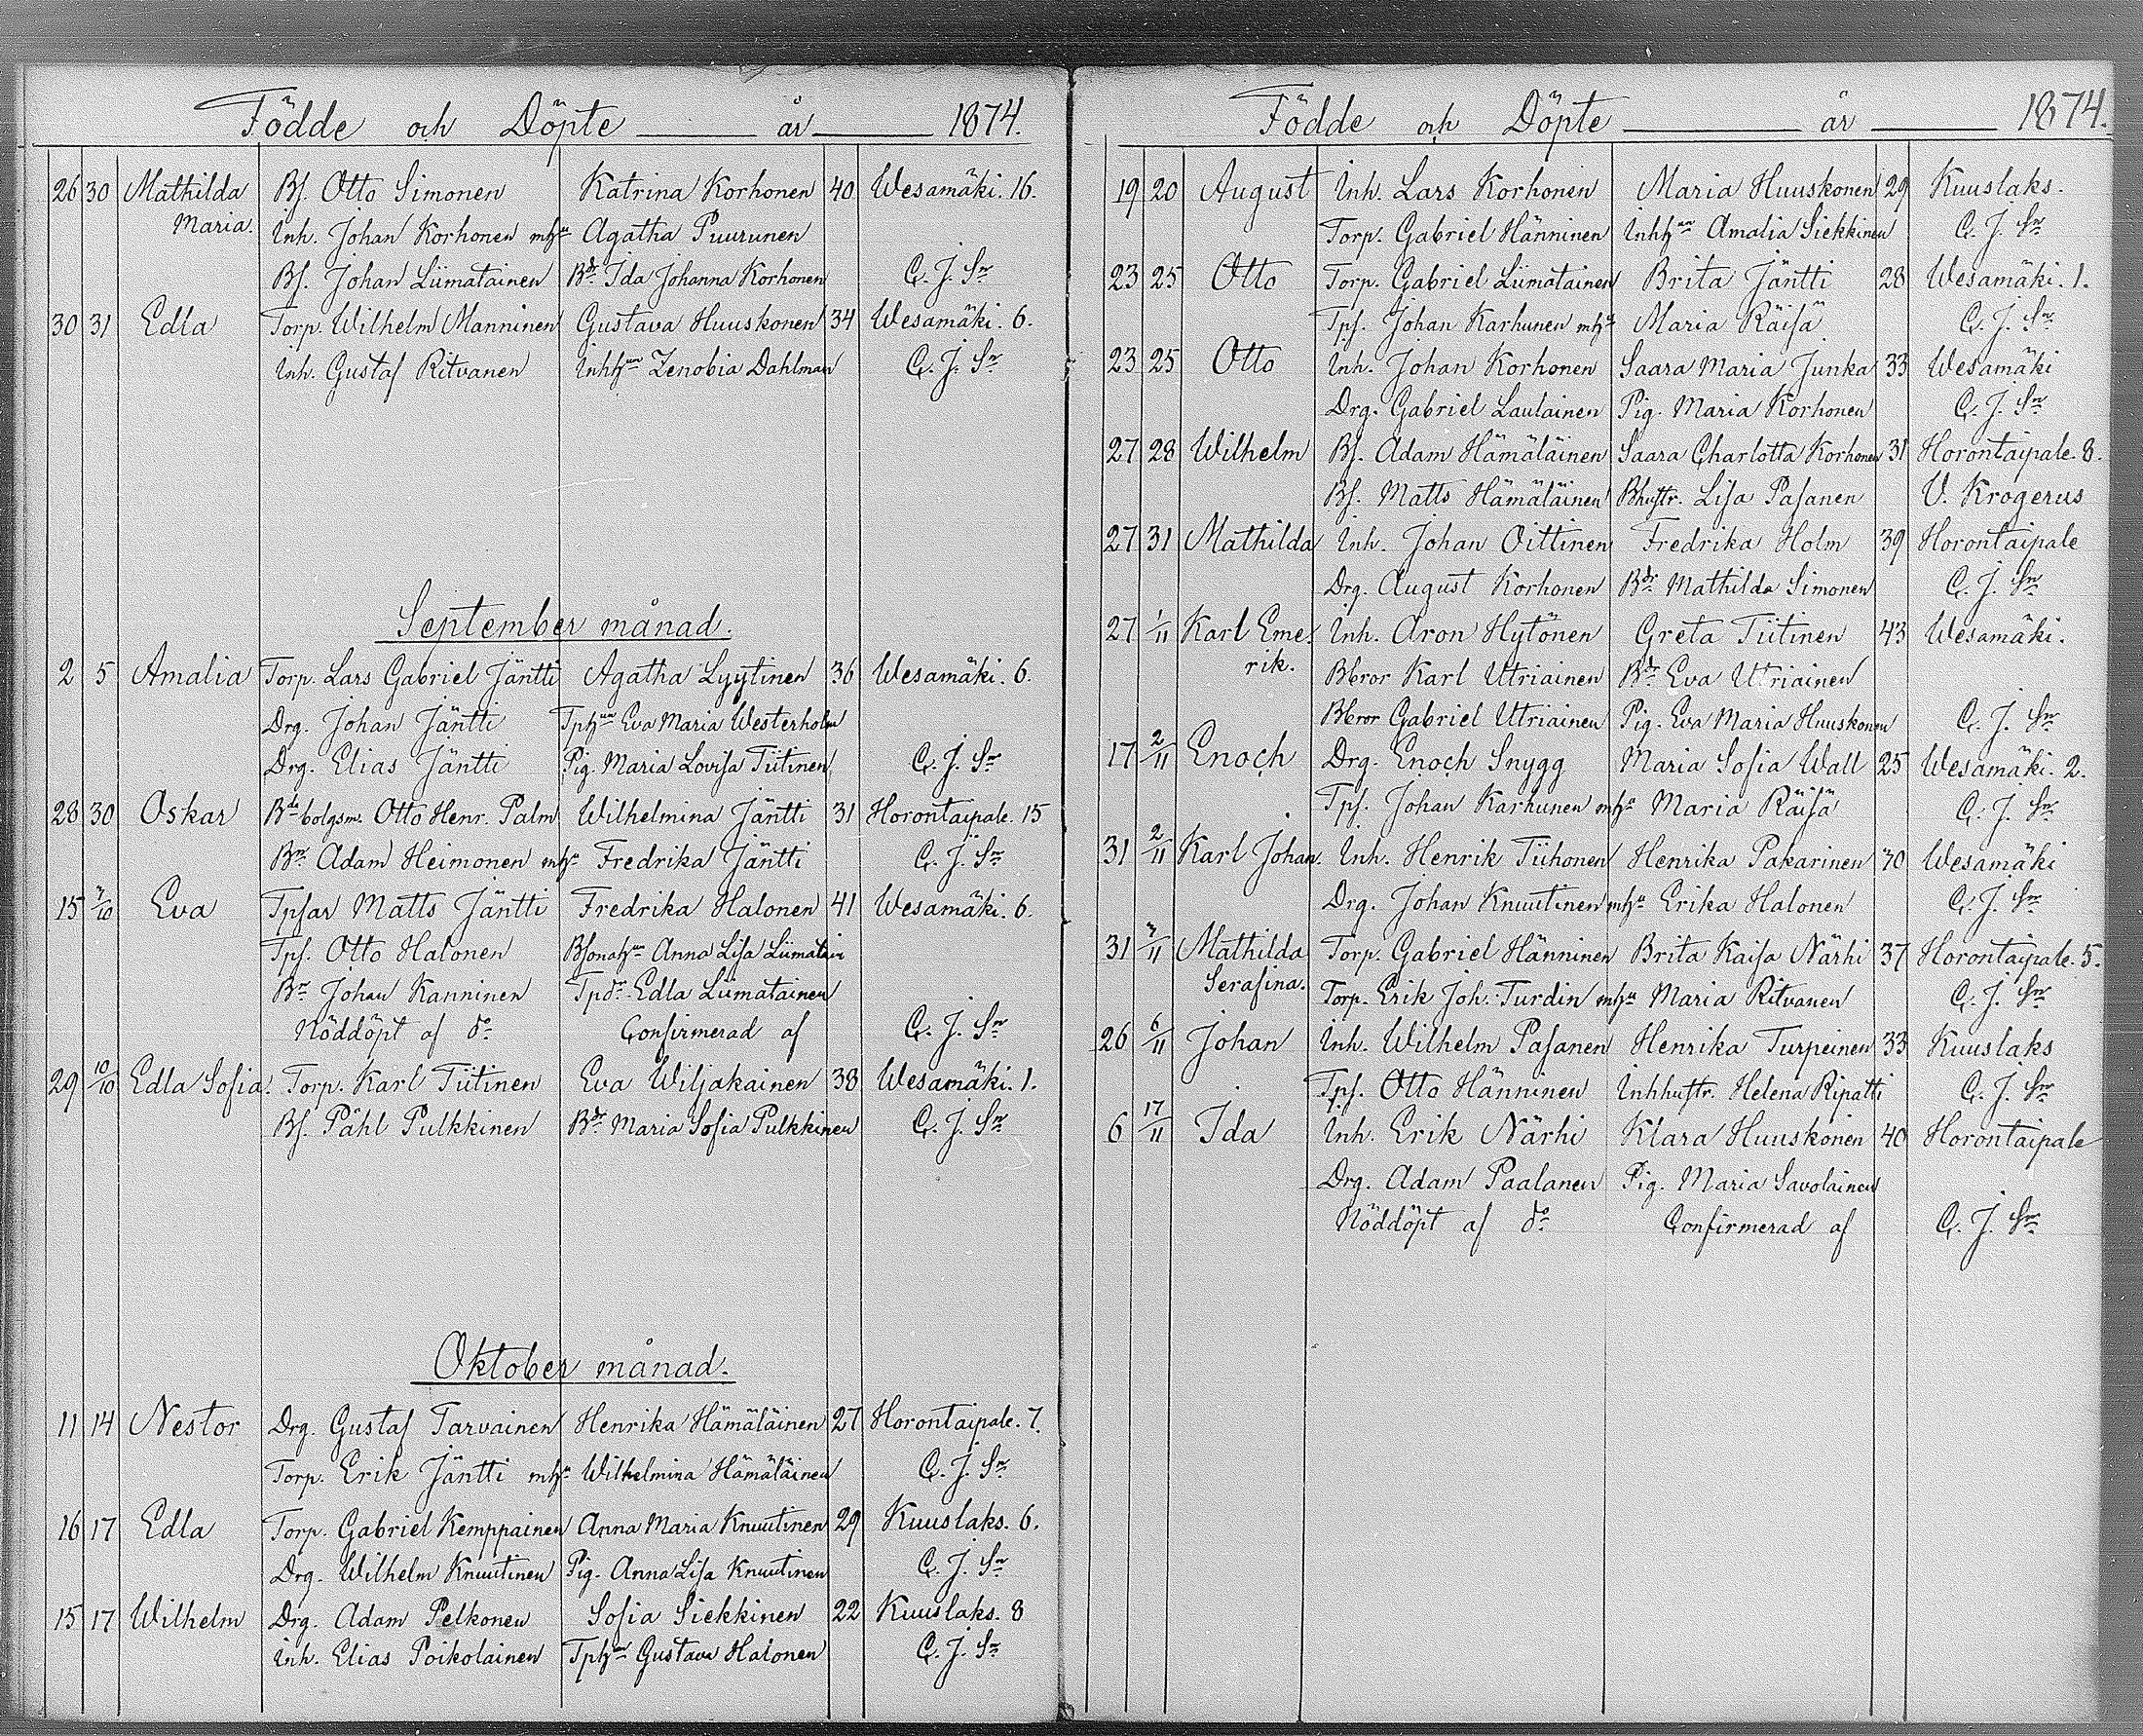 Födde och Döpte år 1874.
26 30 Mathilda Bs. Otto Simonen Katrina Korhonen 40 Wesamäki. 16.
Maria. Inh. Johan Korhonen mhu Agatha Puurunen
Bs. Johan Liimatainen Bdr Ida Johanna Korhonen C. J. Sm
30 31 Edla Torp. Wilhelm Manninen Gustava Huuskonen 34 Wesamäki. 6.
Inh. Gustaf Ritvanen Inhhun Zenobia Dahlman C. J. Sm
September månad.
2 5 Amalia Torp. Lars Gabriel Jäntti Agatha Lyytinen 36 Wesamäki. 6.
Drg. Johan Jäntti Tphun Eva Maria Westerholm
Drg. Elias Jäntti Pig. Maria Lovisa Tiitinen C. J. Sm
28 30 Oskar Otto Henr. Palm Wilhelmina Jäntti 31 Horontaipale. 15
Bn Adam Heimonen mhu Fredrika Jäntti C. J. Sm
15 7/10 Eva Tpsar Matts Jäntti Fredrika Halonen 41 Wesamäki. 6.
Tps. Otto Halonen Bsonahun Anna Lisa Liimatain
Bn Johan Kanninen Tpdr Edla Liimatainen
Nöddöpt af do Confirmerad af C. J. Sm
29 10/10 Edla Sofia. Torp. Karl Tiitinen Eva Wiljakainen 38 Wesamäki. 1.
Bs. Påhl Pulkkinen Bdr Maria Sofia Pulkkinen C. J. Sm
Oktober månad.
11 14 Nestor Drg. Gustaf Tarvainen Henrika Hämäläinen 27 Horontaipale. 7.
Torp. Erik Jäntti mhu Wilhelmina Hämäläinen C. J. Sm
16 17 Edla Torp. Gabriel Kemppainen Anna Maria Knuutinen 29 Kuuslaks. 6.
Drg. Wilhelm Knuutinen Pig. Anna Lisa Knuutinen C. J. Sm
15 17 Wilhelm Drg. Adam Pelkonen Sofia Siekkinen 22 Kuuslaks. 8
Inh. Elias Poikolainen Tphun Gustava Halonen C. J. Sm
Födde och Döpte år 1874.
19 20 August Inh. Lars Korhonen Maria Huuskonen 29 Kuuslaks.
Torp. Gabriel Hänninen Inhhun Amalia Siekkinen C. J. Sm
23 25 Otto Torp. Gabriel Liimatainen Brita Jäntti 28 Wesamäki. 1.
Tps. Johan Karhunen mhu Maria Räisä C. J. Sm
23 25 Otto Inh. Johan Korhonen Saara Maria Junka 33 Wesamäki
Drg. Gabriel Laulainen Pig. Maria Korhonen C. J. Sm
27 28 Wilhelm Bs. Adam Hämäläinen Saara Charlotta Korhonen 31 Horontaipale. 8.
Bs. Matts Hämäläinen Bhustr. Lisa Pasanen V. Krogerus
27 31 Mathilda Inh. Johan Oittinen Fredrika Holm 39 Horontaipale
Drg. August Korhonen Bdr Mathilda Simonen C. J. Sm
27 1/11 Karl Eme- Inh. Aron Hytönen Greta Tiitinen 43 Wesamäki.
rik. Bbror Karl Utriainen Bdr Eva Utriainen
Bbror Gabriel Utriainen Pig. Eva Maria Huuskonen C. J. Sm
17 2/11 Enoch Drg. Enoch Snygg Maria Sofia Wall 25 Wesamäki. 2.
Tps. Johan Karhunen mhu Maria Räisä C. J. Sm
31 2/11 Karl Johan. Inh. Henrik Tiihonen Henrika Pakarinen 40 Wesamäki
Drg. Johan Knuutinen mhu Erika Halonen C. J. Sm
31 7/11 Mathilda Torp. Gabriel Hänninen Brita Kaisa Närhi 37 Horontaipale. 5.
Serafina. Torp. Erik Joh. Turdin mhu Maria Ritvanen C. J. Sm
26 6/11 Johan Inh. Wilhelm Pasanen Henrika Turpeinen 33 Kuuslaks
Tps. Otto Hänninen Inhhustr. Helena Ripatti C. J. Sm
6 17/11 Ida Inh. Erik Närhi Klara Huuskonen 40 Horontaipale
Drg. Adam Paalanen Pig. Maria Savolainen
Nöddöpt af do Confirmerad af C. J. Sm